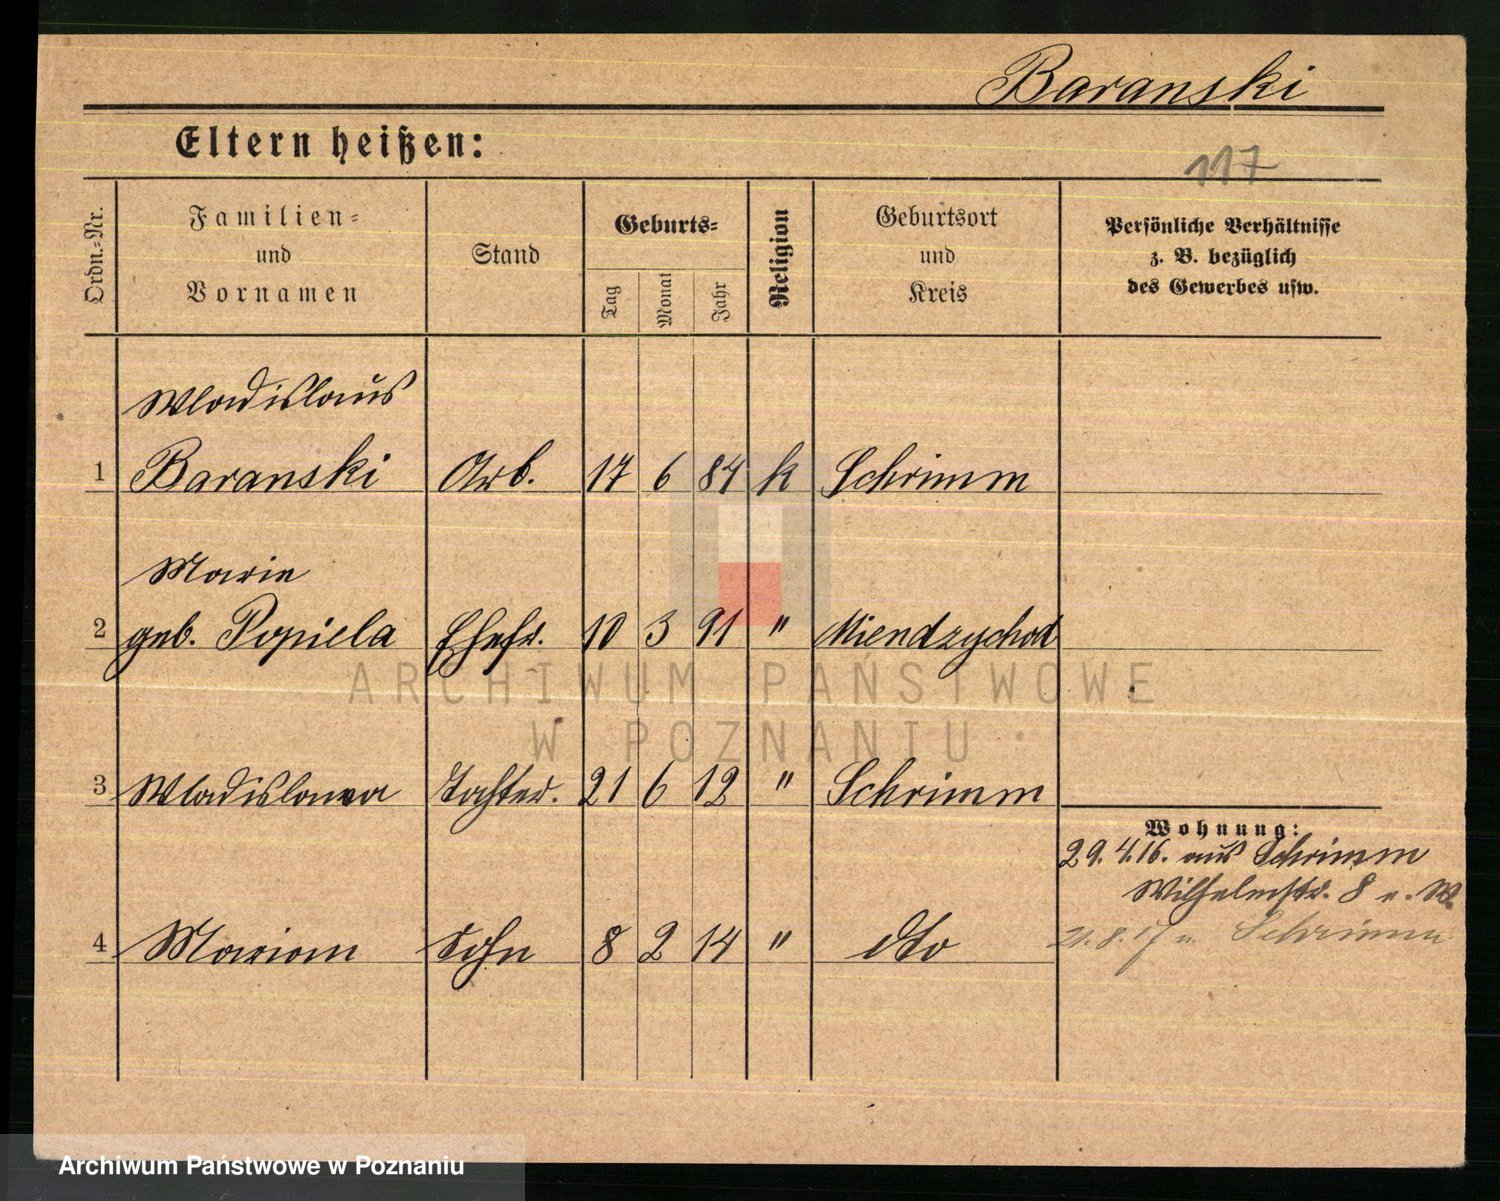 Baranski
Eltern heißen:
117
Ordn.=Nr.
Familien=
und
Vornamen
Stand
Geburts=
Tag
Monat
Jahr
Religion
Geburtsort
und
Kreis
Persönliche Verhältnisse
z. B. bezüglich
des Gewerbes usw.
Wladislaus
1 Baranski Arb. 17 6 84 k Schrimm
Marie
2 geb. Popiela Ehefr. 10 3 91 " Miendzychod
3 Wladislawa Tochter. 21 6 12 " Schrimm
Wohnung:
29. 4. 16. aus Schrimm
Wilhelmstr. 8 b. W.
4 Marian Sohn 8 2 14 " dto
21. 8. 17 n. Schrimm
ARCHIWUM PAŃSTWOWE
W POZNANIU
Archiwum Państwowe w Poznaniu